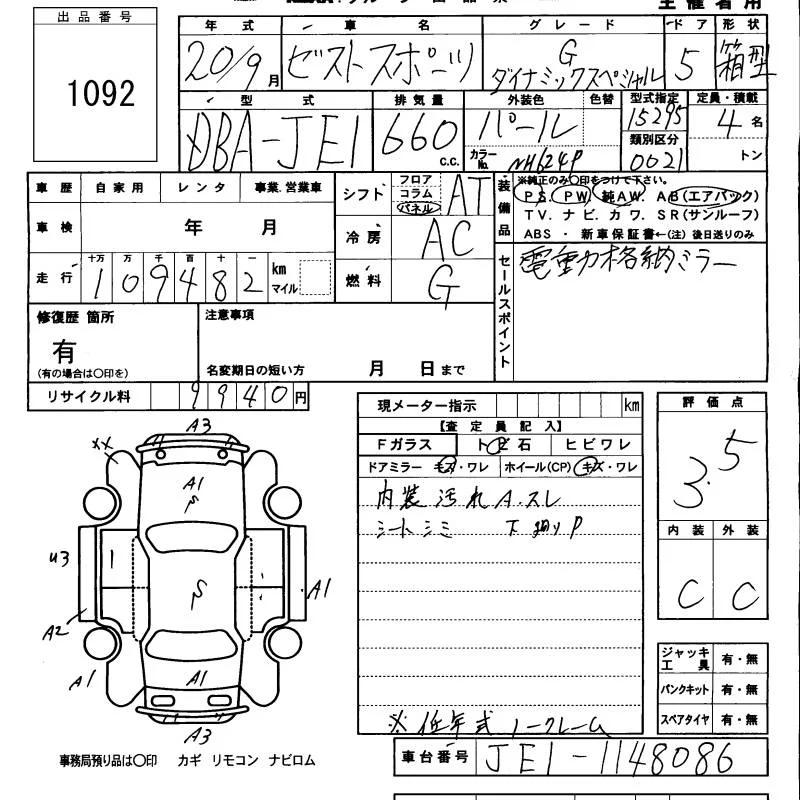 主催者用
出品番号
1092
年式 車名 グレード ドア 形状
20/9月 ゼストスポーツ G
ダイナミックスペシャル 5 箱型
型式 排気量 外装色 色替 型式指定 定員・積載
DBA-JE1 660 c.c. パール 15295 4名
カラーNo. NH624P 類別区分 0021 トン
車歴 自家用 レンタ 事業.営業車
車検 年 月
走行 十万 万 千 百 十 一
109482 km マイル
シフト フロア コラム パネル AT
冷房 AC
燃料 G
装備品
※純正のみ〇印をつけて下さい。
PS. PW. 純AW. AB(エアバック)
TV. ナビ. カワ. SR(サンルーフ)
ABS ・ 新車保証書←(注) 後日送りのみ
セールスポイント
電動格納ミラー
修復歴 箇所
有
(有の場合は〇印を)
注意事項
名変期日の短い方 月 日まで
リサイクル料 9940円
現メーター指示 km
【査定員記入】
Fガラス トビ石 ヒビワレ
ドアミラー キズ・ワレ ホイール(CP) キズ・ワレ
内装汚れ A.スレ
シートシミ 下廻りP
※低年式 ノークレーム
評価点
3.5
内装 外装
C C
ジャッキ工具 有・無
パンクキット 有・無
スペアタイヤ 有・無
A3
XX
A1
S
U3
S
A1
A2
A1
A1
A3
事務局預り品は〇印 カギ リモコン ナビロム
車台番号 JE1-1148086